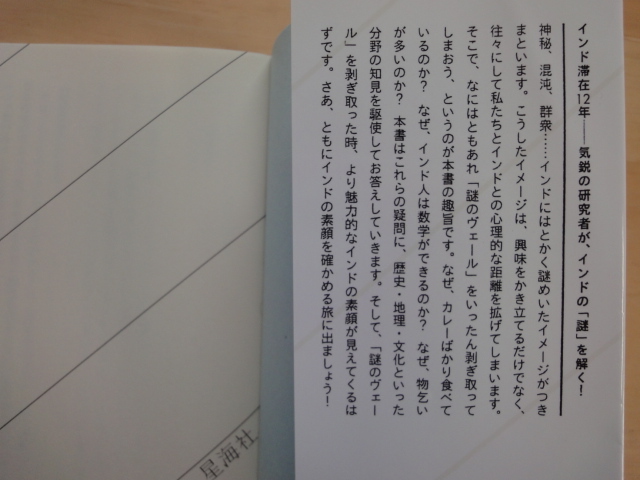 インド滞在12年――気鋭の研究者が、インドの「謎」を解く!
神秘、混沌、群衆……インドにはとかく謎めいたイメージがつき
まといます。こうしたイメージは、興味をかき立てるだけでなく、
往々にして私たちとインドとの心理的な距離を拡げてしまいます。
そこで、なにはともあれ「謎のヴェール」をいったん剥ぎ取って
しまおう、というのが本書の趣旨です。なぜ、カレーばかり食べて
いるのか? なぜ、インド人は数学ができるのか? なぜ、物乞い
が多いのか? 本書はこれらの疑問に、歴史・地理・文化といった
分野の知見を駆使してお答えしていきます。そして、「謎のヴェー
ル」を剥ぎ取った時、より魅力的なインドの素顔が見えてくるは
ずです。さあ、ともにインドの素顔を確かめる旅に出ましょう!
星海社